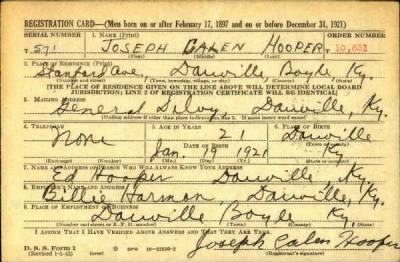 REGISTRATION CARD—(Men born on or after February 17, 1897 and on or before December 31, 1921)
SERIAL NUMBER 1. NAME (Print) ORDER NUMBER
T 571 JOSEPH CALEN HOOPER T 10,651
(First) (Middle) (Last)
2. PLACE OF RESIDENCE (Print)
Stanford Ave., Danville, Boyle, Ky.
(Number and street) (Town, township, village, or city) (County) (State)
[THE PLACE OF RESIDENCE GIVEN ON THE LINE ABOVE WILL DETERMINE LOCAL BOARD
JURISDICTION; LINE 2 OF REGISTRATION CERTIFICATE WILL BE IDENTICAL]
3. MAILING ADDRESS
General Delvy Danville, Ky.
[Mailing address if other than place indicated on line 2. If same insert word same]
4. TELEPHONE 5. AGE IN YEARS 6. PLACE OF BIRTH
none 21 Danville
DATE OF BIRTH
Jan. 19 1921 Ky.
(Mo.) (Day) (Yr.)
7. NAME AND ADDRESS OF PERSON WHO WILL ALWAYS KNOW YOUR ADDRESS
Ed Hooper Danville, Ky.
8. EMPLOYER'S NAME AND ADDRESS
Billie Harman, Danville, Ky.
9. PLACE OF EMPLOYMENT OR BUSINESS
Danville Boyle Ky.
(Number and street or R. F. D. number) (Town) (County) (State)
I AFFIRM THAT I HAVE VERIFIED ABOVE ANSWERS AND THAT THEY ARE TRUE.
D. S. S. Form 1
(Revised 1-1-42) (over)
Joseph Calen Hooper